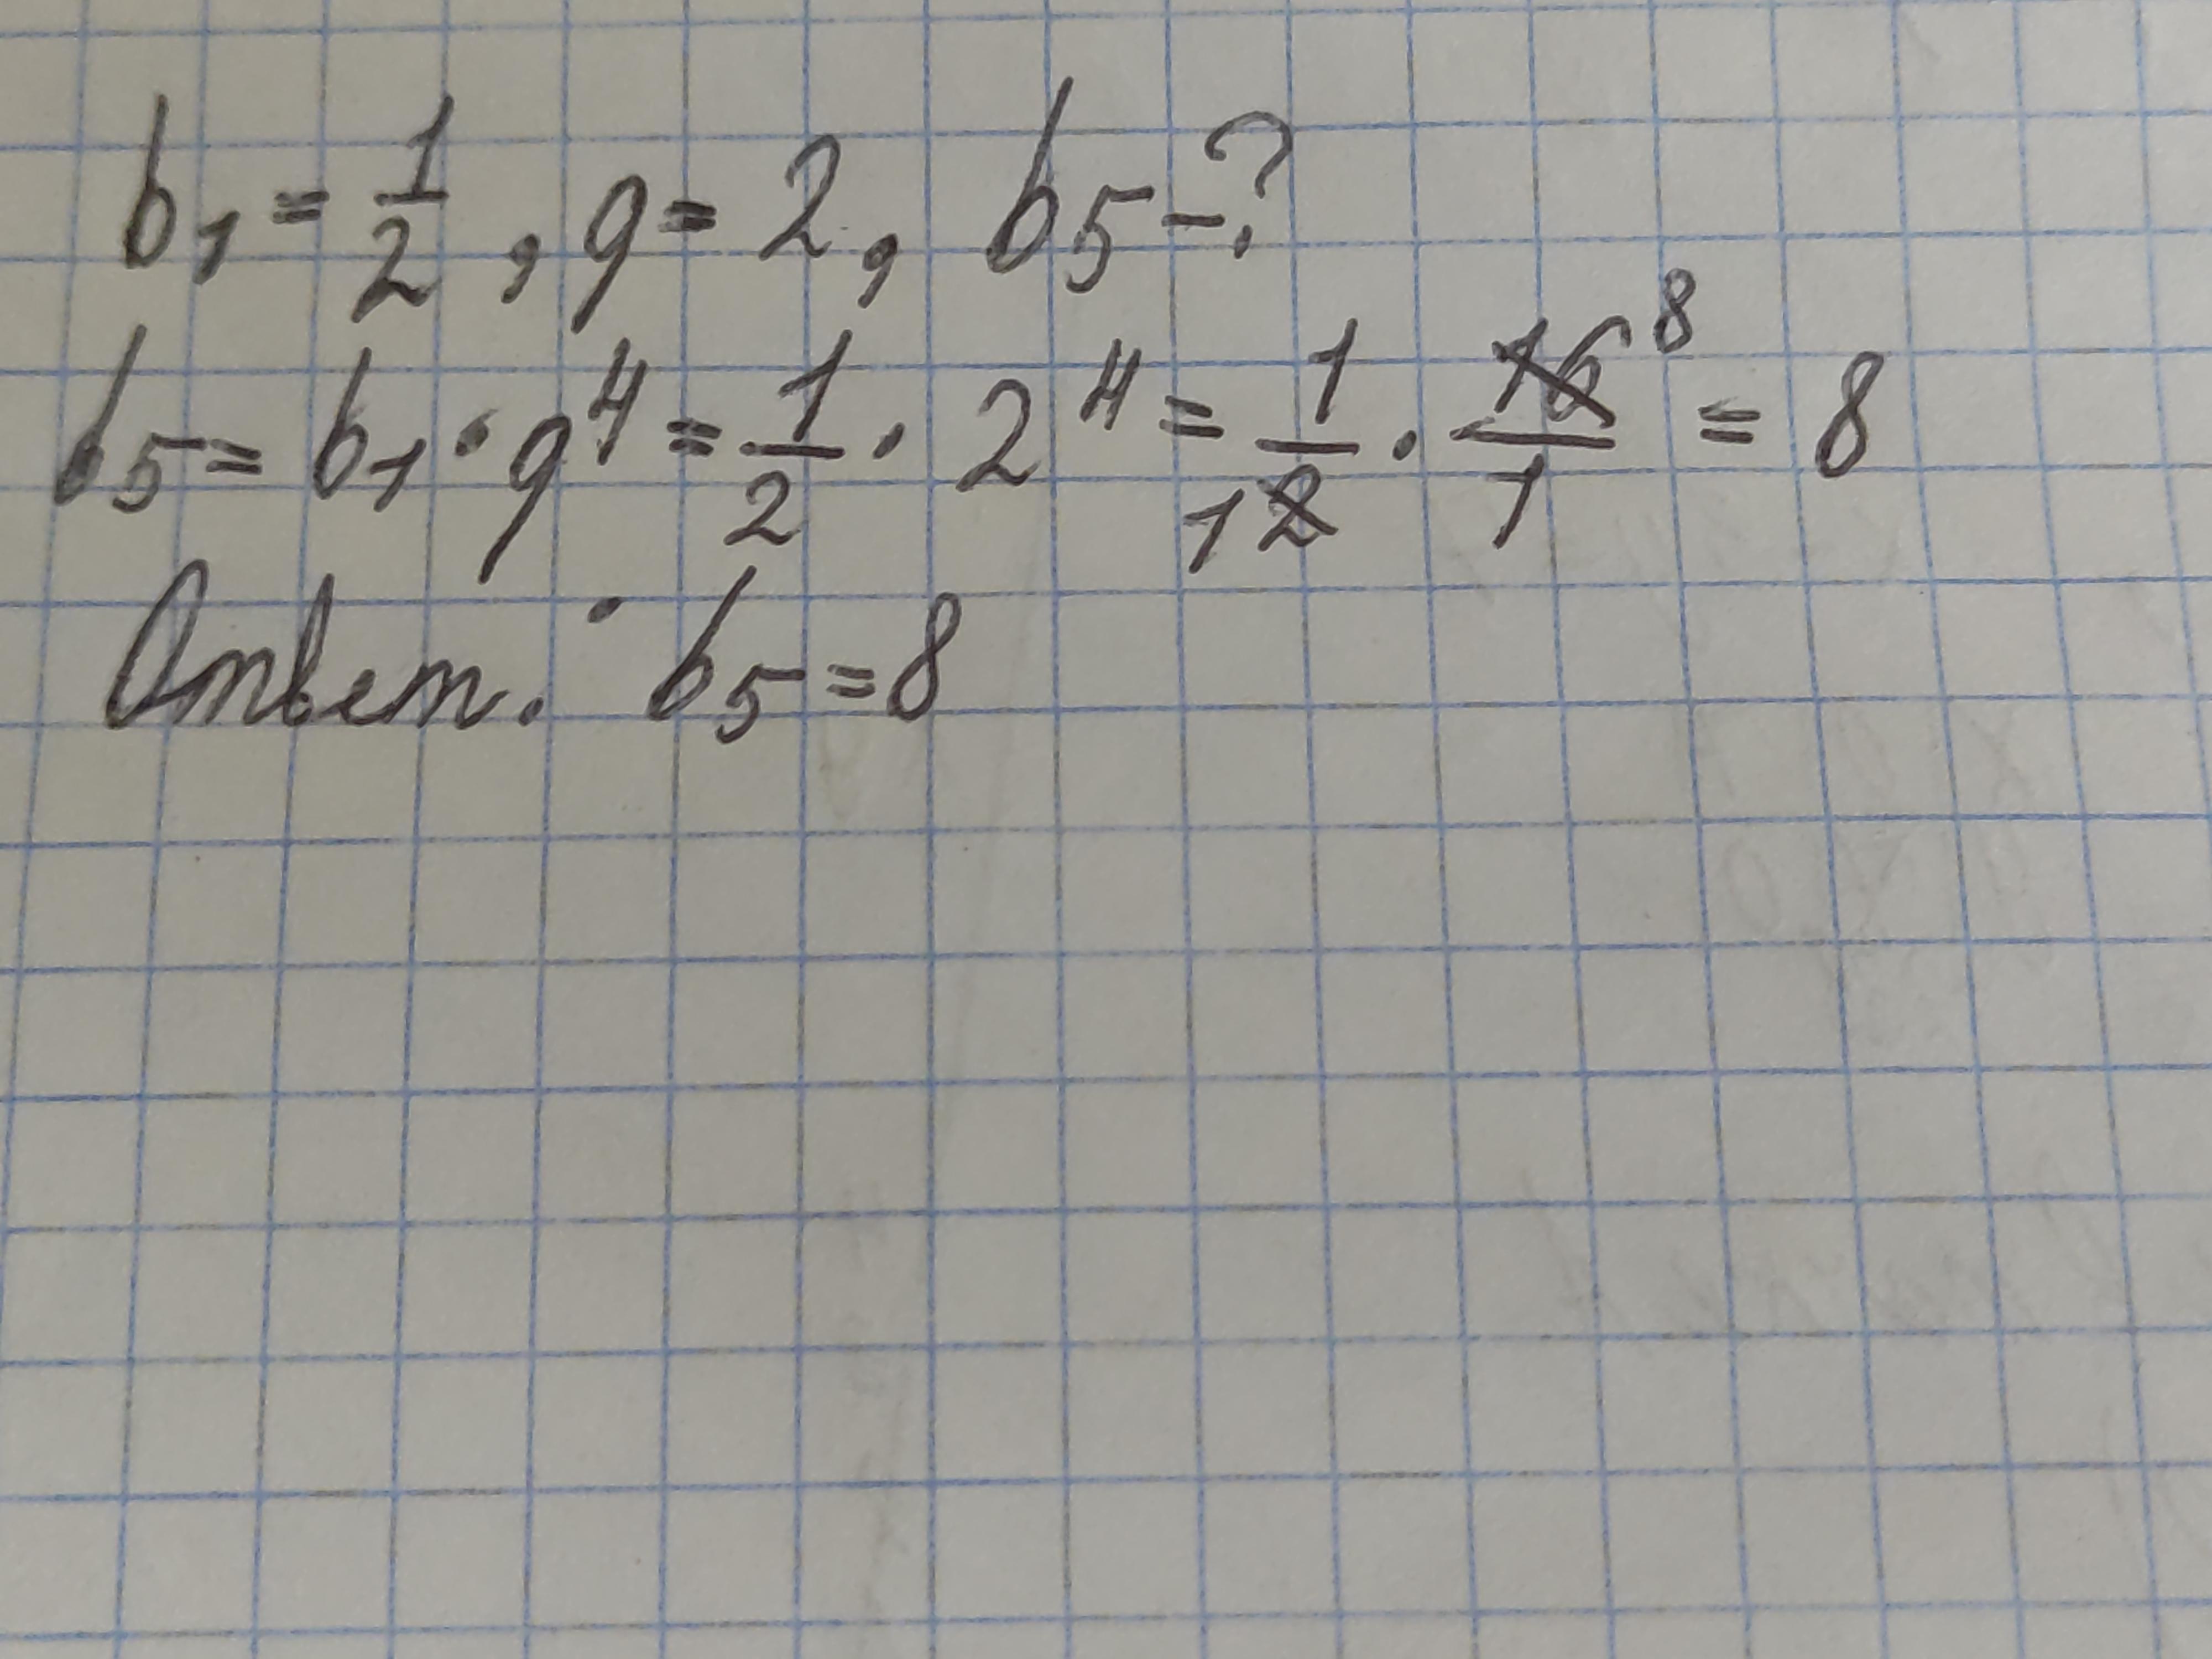 b₁ = 1/2, q = 2, b₅ - ?
b₅ = b₁ · q⁴ = 1/2 · 2⁴ = 1/2 1 · 16 8/1 = 8
Ответ: b₅ = 8